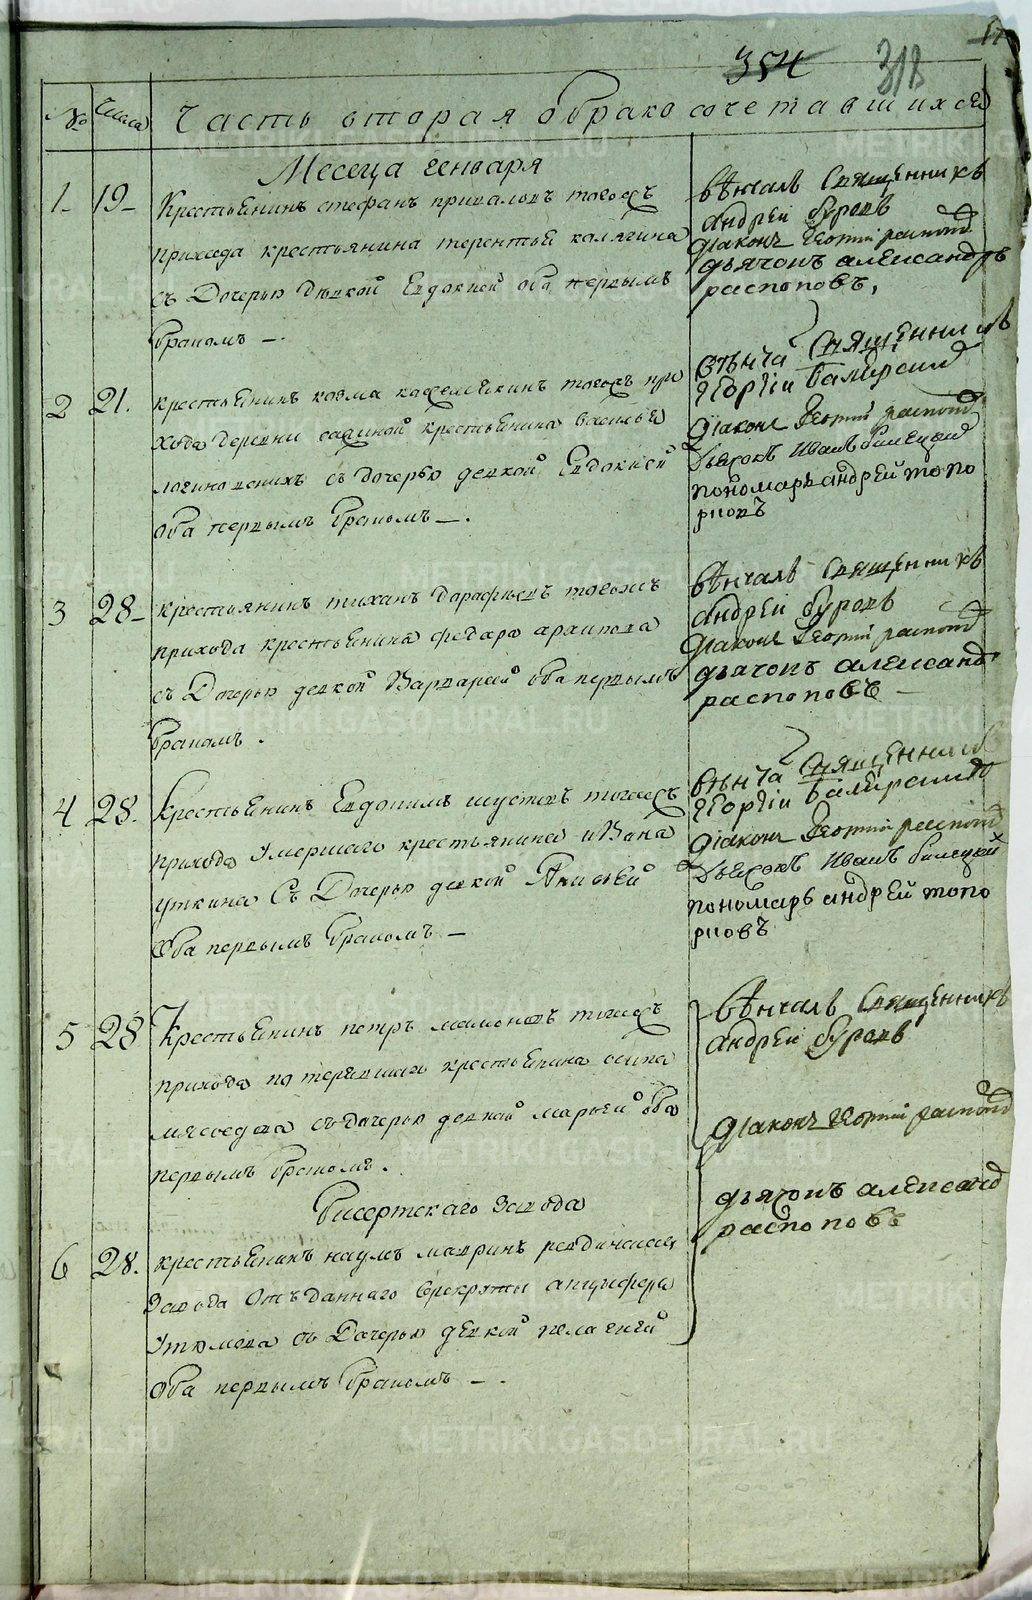 354 318
№ Числа Часть вторая о бракосочетавшихся
Месеца генваря
1 19 Крестьянинъ стефанъ приваловъ тогожъ
прихода крестьянина терентья калягина
съ Дочерью Девкой Евдокией оба первымъ
бракомъ
венчалъ Священникъ
андрей буровъ
диаконъ Георгий распопов
дьячокъ александръ
распоповъ
2 21 крестьянинъ козма тогожъ при
хода деревни крестьянина василья
съ дочерью девкой Евдокией
оба первымъ бракомъ
венча Священникъ
Георгий
диаконъ Георгий распопов
Дьячокъ Иванъ билецкой
пономарь андрей топо
рковъ
3 28 крестьянинъ тиханъ дарафеевъ тогожъ
прихода крестьянина федара архипова
съ Дочерью девкой Варварай оба первымъ
бракомъ
венчалъ Священникъ
андрей буровъ
диаконъ Георгий распопов
дьячокъ александ
распоповъ
4 28 Крестьянинъ Евдокимъ шустовъ тогожъ
прихода Умершаго крестьянина ивана
уткина Съ Дочерью девкой Анисьей
Оба первымъ бракомъ
венча Священникъ
Георгий
диаконъ Георгий распопов
Дьячокъ Иванъ билецкой
пономарь андрей топо
рковъ
5 28 Крестьянинъ петръ мамоновъ тогожъ
прихода крестьянина осипа
мясоедова съ дочерью девкой марьей оба
первымъ бракомъ
венчалъ Священникъ
андрей буровъ
диаконъ Георгий распопов
дьячокъ александ
распоповъ
Бисертскаго Завода
6 28 крестьянинъ наумъ мавринъ ревдинскаго
Завода Отъданнаго в рекруты анцифера
Утюмова съ Дочерью девкой пелагией
Оба первымъ бракомъ
METRIKI.GASO-URAL.RU